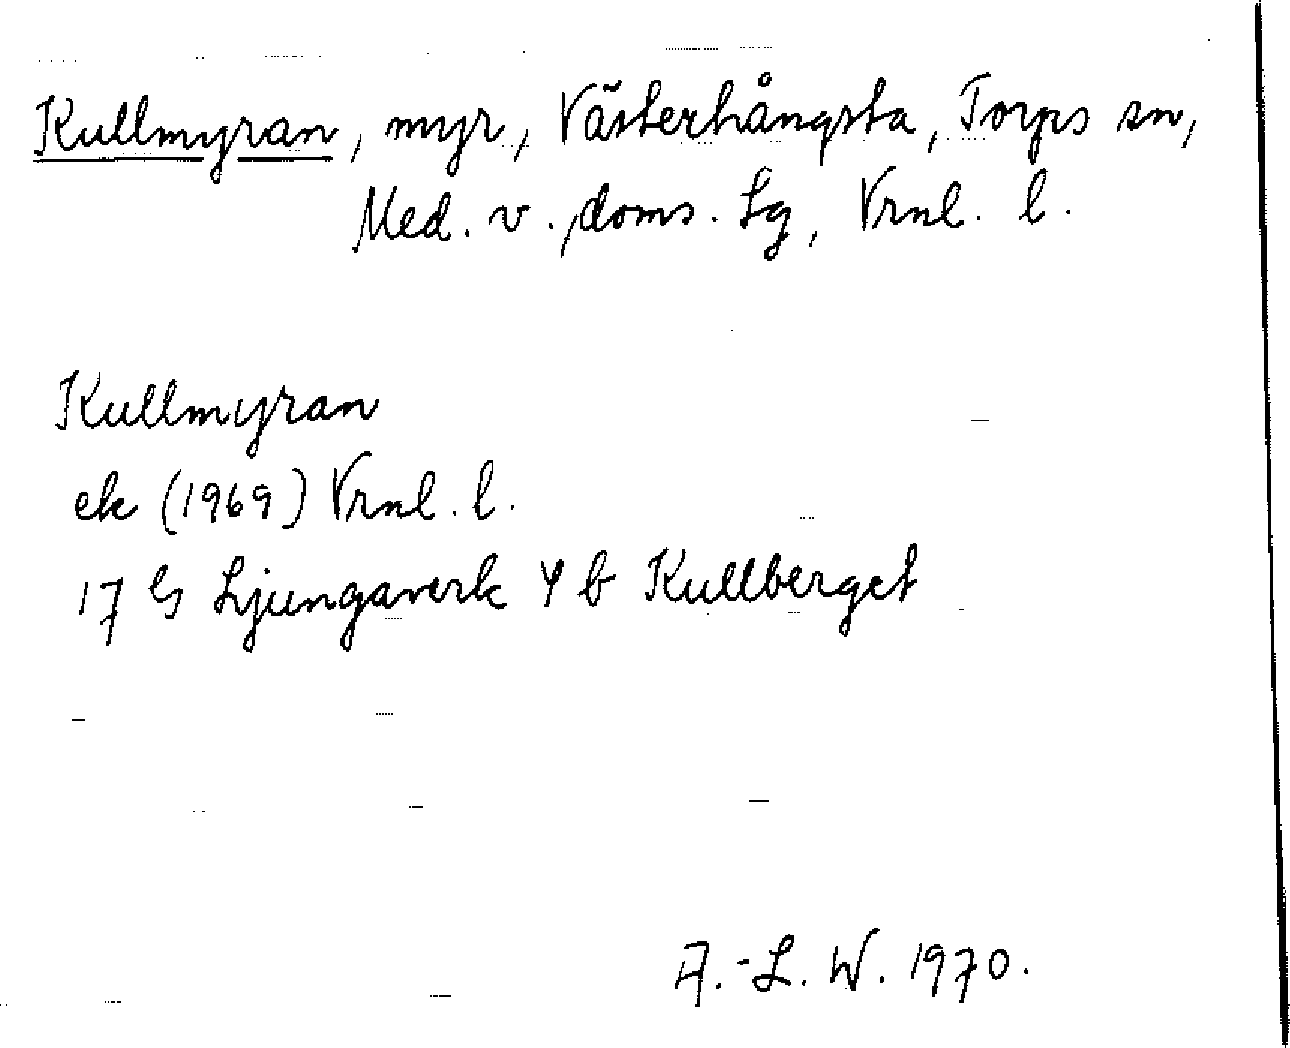 Kullmyran, myr, Västerhångsta, Torps sn,
Med. v. doms. Lg, Vrnl. l.
Kullmyran
ek (1969) Vrnl. l.
17 G Ljungaverk 4 b Kullberget
A.-L. W. 1970.